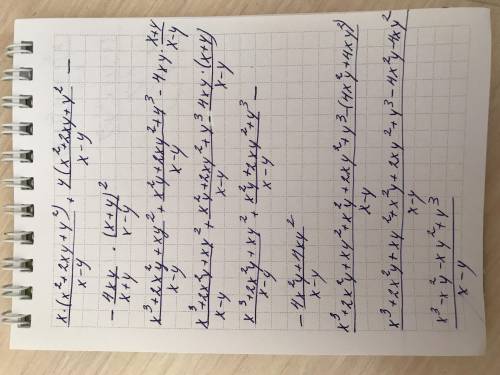 (x·(x²+2xy+y²))/(x-y) + (y(x²+2xy+y²))/(x-y) -
- (4xy)/(x+y) · ((x+y)²)/(x-y)
(x³+2x²y+xy²)/(x-y) + (x²y+2xy²+y³)/(x-y) - 4xy · (x+y)/(x-y)
(x³+2x²y+xy²)/(x-y) + (x²y+2xy²+y³)/(x-y) - (4xy·(x+y))/(x-y)
(x³+2x²y+xy²)/(x-y) + (x²y+2xy²+y³)/(x-y) -
- (4x²y+4xy²)/(x-y)
(x³+2x²y+xy²+x²y+2xy²+y³-(4x²y+4xy²))/(x-y)
(x³+2x²y+xy²+x²y+2xy²+y³-4x²y-4xy²)/(x-y)
(x³-x²y-xy²+y³)/(x-y)